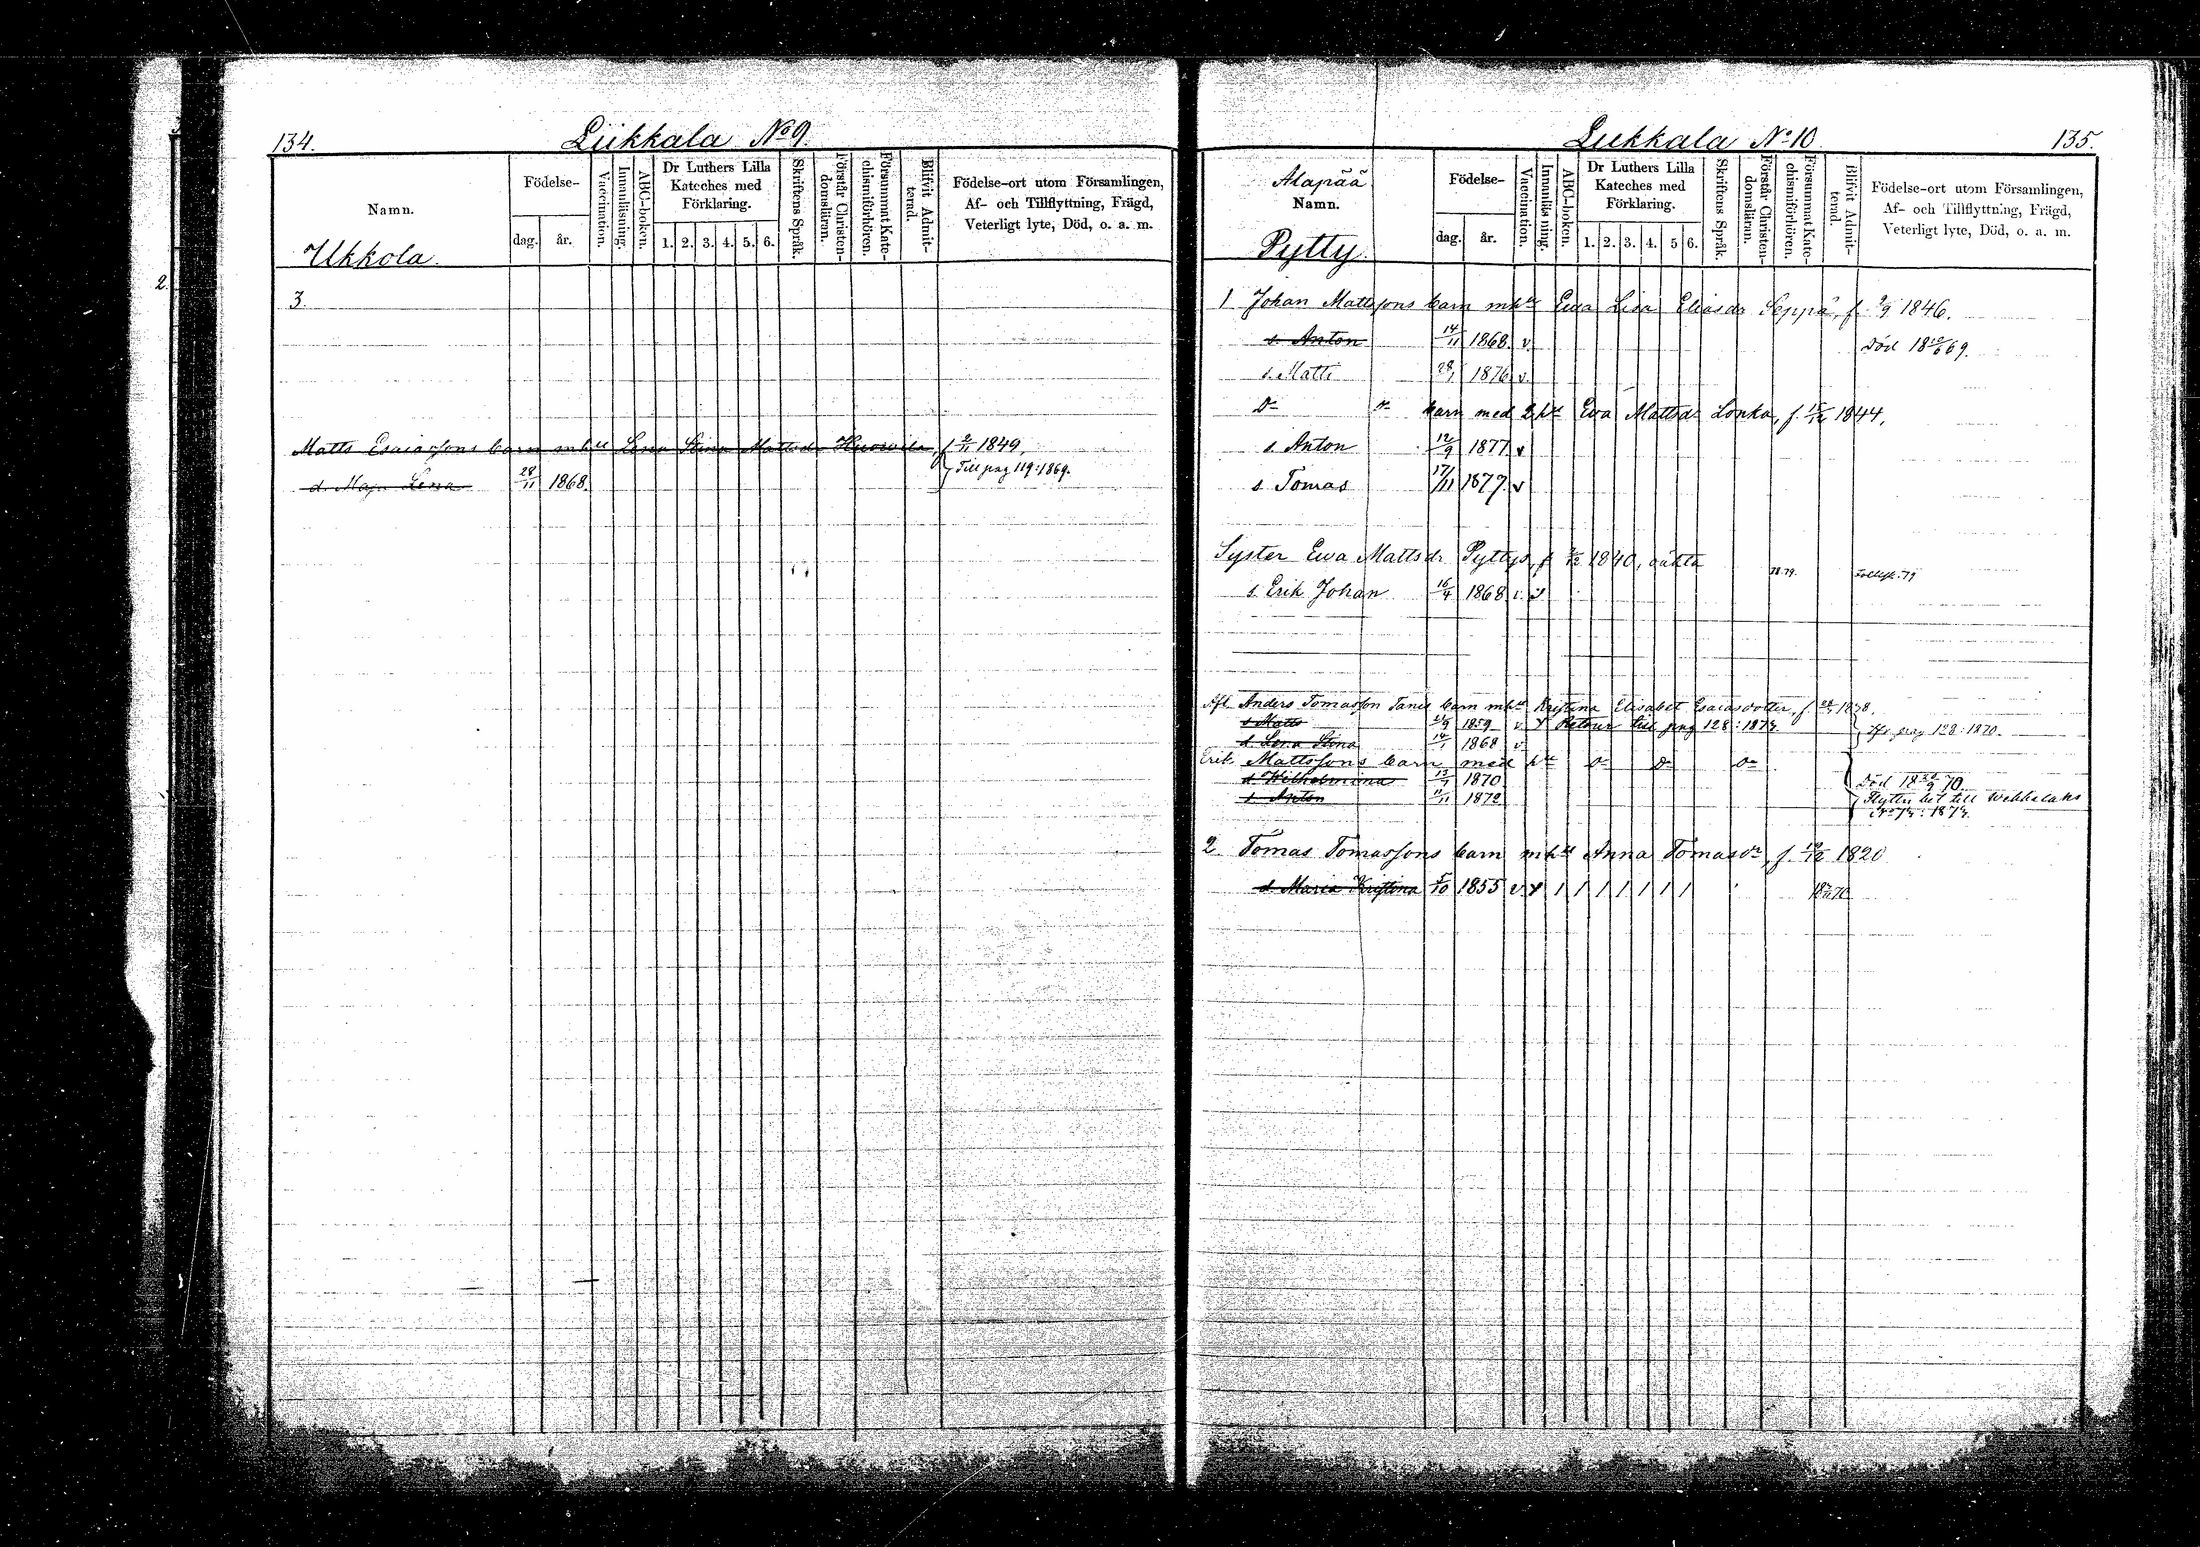 134. Liikkala No 9.
Namn. Födelse- dag. år. Vaccination. Innanläsning. ABC-boken. Dr Luthers Lilla Kateches med Förklaring. 1. 2. 3. 4. 5. 6. Skriftens Språk. Förstår Christendomsläran. Försummat Katechismiförhören. Blifvit Admitterad. Födelse-ort utom Församlingen, Af- och Tillflyttning, Frägd, Veterligt lyte, Död, o. a. m.
Ukkola
2.
3.
Matts Esaiassons barn mhu Lena Stina Mattsdr f 2/11 1849,
d. Maja Lena 28/11 1868. Till pag 119: 1869.
Liikkala No 10. 135.
Alapää
Namn. Födelse- dag. år. Vaccination. Innanläsning. ABC-boken. Dr Luthers Lilla Kateches med Förklaring. 1. 2. 3. 4. 5 6. Skriftens Språk. Förstår Christendomsläran. Försummat Katechismiförhören. Blifvit Admitterad. Födelse-ort utom Församlingen, Af- och Tillflyttning, Frägd, Veterligt lyte, Död, o. a. m.
Pytty
1 Johan Mattssons barn mhu Ewa Lisa Eliasdr Seppä, f. 9/9 1846.
s. Anton 14/11 1868. v. Död 18 10/6 69.
s. Matts 28/1 1876 v.
Do do barn med 2 hu Ewa Mattsdr Lonka, f. 15/12 1844.
s. Anton 12/9 1877 v
s. Tomas 17/11 1877 v
Syster Ewa Mattsdr Pytty, f 1840, oäkta
s. Erik Johan 16/4 1868 v. 78.79.
Afl. Anders Tomasson Tanis barn mhu Kristina Elisabet Esaiasdotter, f. 1838
s Matts 1859 v Retour till pag 128: 1874.
d Lena Stina 1868 v. pag 128: 1870.
Erik Mattssons barn med hu Do Do Do
d Wilhelmina 13/7 1870 Död 70.
s. Anton 11/11 1872 Flyttn till Wekkelaks
1874.
2 Tomas Tomassons barn mhu Anna Tomasdr, f. 1820
d Maria Kristina 5/10 1855 v